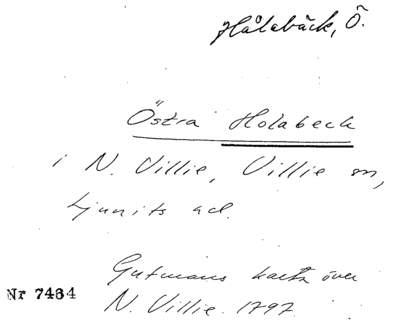 Hålabäck, Ö.
Östra Holabeck
i N. Villie, Villie sn,
Ljunits hd.
Gutmans karta över
Nr 7464 N. Villie 1797